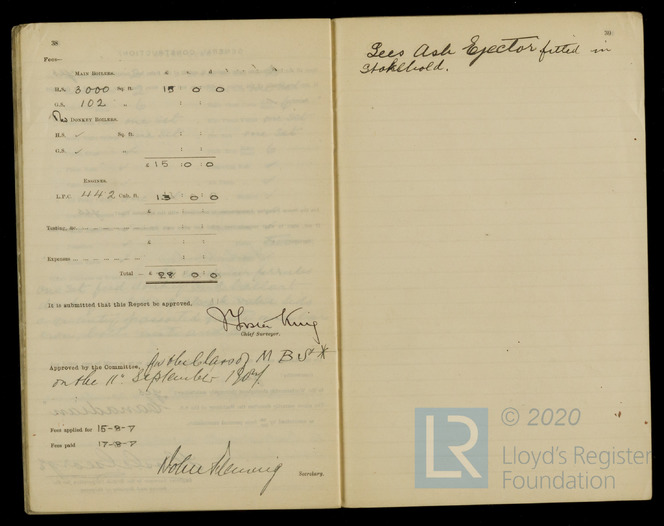 38
Fees—
MAIN BOILERS. £ s d
H.S. 3000 Sq. ft. 15 0 0
G.S. 102 " : :
DONKEY BOILERS.
H.S. ✓ Sq. ft. : :
G.S. ✓ " : :
£ 15 : 0 : 0
ENGINES.
L.P.C. 442 Cub. ft. 13 0 0
£ : :
Testing, &c.
£ : :
Expenses ...
Total ... £ 28 0 0
It is submitted that this Report be approved,
J Foster King
Chief Surveyor.
Approved by the Committee, for the Class of M B S *
on the 11th September 1907
Fee applied for 15-8-7
Fee paid 17-8-7
John Fleming
Secretary.
39
Sees Ash Ejector fitted in
Stokehold.
LR © 2020
Lloyd's Register
Foundation